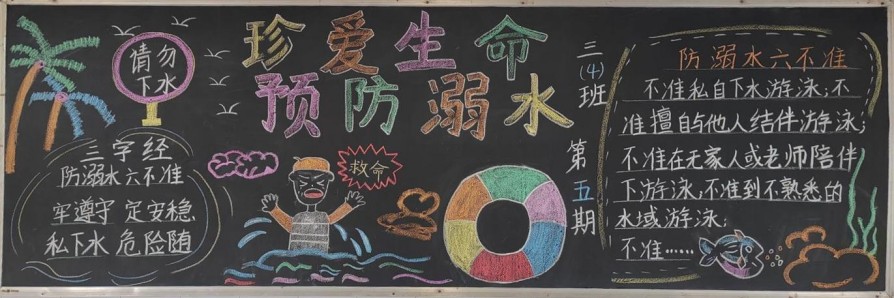 请勿
下水
珍爱生命
预防溺水
三(4)班
第五期
三字经
防溺水六不准
牢遵守 定安稳
私下水 危险随
救命
防溺水六不准
不准私自下水游泳;不
准擅自与他人结伴游泳;
不准在无家人或老师陪伴
下游泳;不准到不熟悉的
水域游泳;
不准……